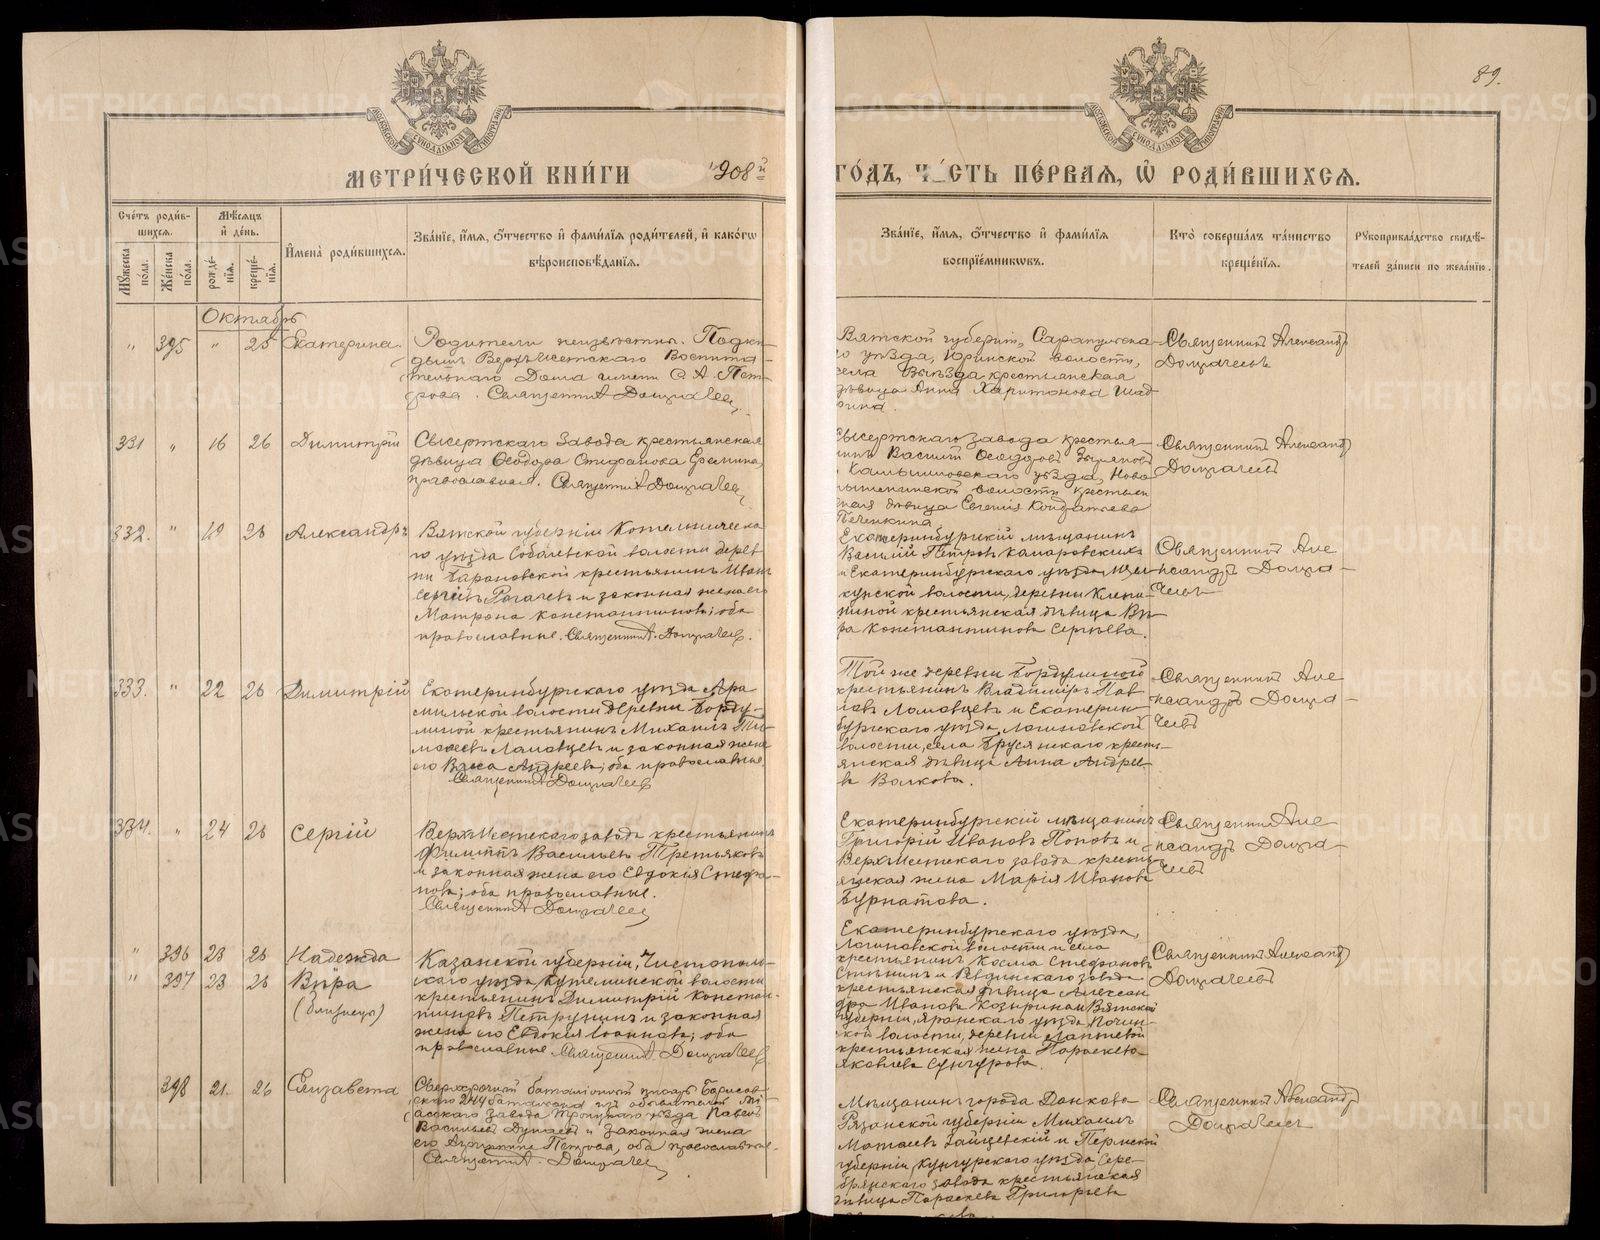 89.
МЕТРИ́ЧЕСКОЙ КНИ́ГИ 1908й
ГО́ДЪ, Ч_СТЬ ПЕ́РВАЯ, Ѡ РОДИ́ВШИХСЯ.
Сче́тъ роди́в-
шихся.
Му́жеска по́ла.
Же́нска по́ла.
Мѣ́сяцъ
и́ де́нь.
рожде́-
нїя.
креще́-
нїя.
И́мена̀ роди́вшихся.
Зва́нїе, и́мя, о́тчество и́ фами́лїя роди́телей, и́ како́гѡ
вѣроисповѣ́данїя.
Зва́нїе, и́мя, о́тчество и́ фами́лїя
воспрїе́мникѡвъ.
Кто̀ соверша́лъ та́инство
креще́нїя.
Рꙋкоприкла́дство свидѣ́-
телей за́писи по жела́нїю.
Октябрь
„ 395 „ 25 Екатерина.
Родители неизвѣстны. Подки-
дышъ Верхъ-Исетскаго Воспита-
тельнаго Дома имени С. А. Пет-
рова. Священникъ Домрачевъ.
Вятской губерніи, Сарапульска-
го уѣзда, Юринской волости,
села Выѣзда крестьянская
дѣвица Анна Харитонова Шад-
рина.
Священникъ Александръ
Домрачевъ
331 „ 16 26 Димитрій
Сысертскаго Завода крестьянская
дѣвица Ѳеодора Стефанова Еремина,
православная. Священникъ Домрачевъ
Сысертскаго завода крестья-
нинъ Василій Ѳеодоровъ
и Камышловскаго уѣзда, Ново-
пышминской волости крестьян-
ская дѣвица Евгенія Кондратьева
Печенкина
Священникъ Александръ
Домрачевъ
332. „ 19 26 Александръ
Вятской губерніи Котельническа-
го уѣзда Соболевской волости дерев-
ни Барановской крестьянинъ Иванъ
Сергѣевъ Рогачевъ и законная жена его
Матрона Константинова; оба
православные. Священникъ Домрачевъ.
Екатеринбургскій мѣщанинъ
Василій Петровъ Комаровскихъ
и Екатеринбургскаго уѣзда,
волости, деревни
крестьянская дѣвица Вѣ-
ра Константинова Сергѣева.
Священникъ Але-
ксандръ Домра-
чевъ
333. „ 22 26 Димитрій
Екатеринбургскаго уѣзда Ара-
мильской волости деревни Борду-
линой крестьянинъ Михаилъ Ти-
моѳеевъ Ломовцевъ и законная жена
его Васса Андреева; оба православные.
Священникъ Домрачевъ
Той же деревни Бордулиной
крестьянинъ Владиміръ Пав-
ловъ Ломовцевъ и Екатерин-
бургскаго уѣзда, Логиновской
волости, села Бруснянскаго кресть-
янская дѣвица Анна Андрее-
ва Волкова.
Священникъ Але-
ксандръ Домра-
чевъ
334. „ 24 26 Сергій
Верхъ-Исетскаго завода крестьянинъ
Филиппъ Васильевъ Третьяковъ
и законная жена его Евдокія Стефа-
нова; оба православные.
Священникъ Домрачевъ
Екатеринбургскій мѣщанинъ
Григорій Ивановъ Поповъ и
Верхъ-Исетскаго завода кресть-
янская жена Марія Иванова
Бурнатова.
Священникъ Але-
ксандръ Домра-
чевъ
„ 396 23 26 Надежда
„ 397 23 26 Вѣра
(близнецы)
Казанской губерніи, Чистополь-
скаго уѣзда, Кутеминской волости
крестьянинъ Димитрій Констан-
тиновъ Петрунинъ и законная
жена его Евдокія Іоаннова; оба
православные Священникъ Домрачевъ
Екатеринбургскаго уѣзда,
Логиновской волости и села
крестьянинъ Косма Стефановъ
и Ревдинскаго завода
крестьянская дѣвица Алексан-
дра Иванова Козырина и Вятской
губерніи, Яранскаго уѣзда, Почин-
ской волости, деревни Лаптевой
крестьянская жена Параскева
Яковлева Сунгурова.
Священникъ Александръ
Домрачевъ
398 21. 26 Елизавета
Сверхсрочный баталіонный писарь Борисов-
скаго 244 баталіона изъ обывателей Мі-
асскаго завода Троицкаго уѣзда Павелъ
Васильевъ Дунаевъ и законная жена
его Петрова, оба православные.
Священникъ Домрачевъ
Мѣщанинъ города Данкова
Рязанской губерніи Михаилъ
Матвѣевъ Зайцевскій и Пермской
губерніи, Кунгурскаго уѣзда, Сере-
брянскаго завода крестьянская
дѣвица Параскева Григорьева
Священникъ Александръ
Домрачевъ
METRIKI.GASO-URAL.RU